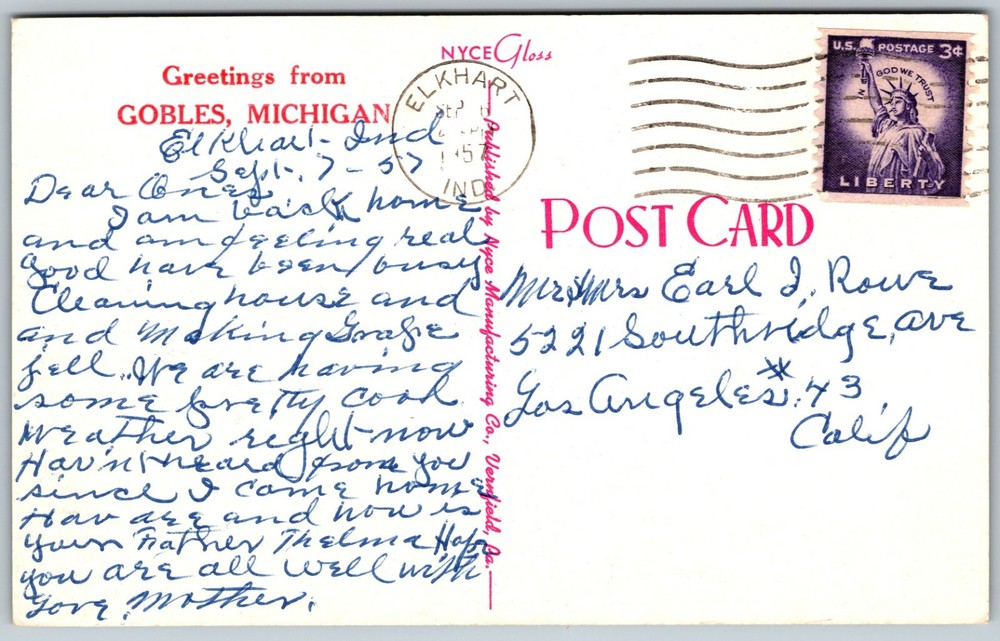 NYCE Gloss
Greetings from
GOBLES, MICHIGAN
ELKHART
SEP
195
IND
U.S. POSTAGE 3¢
IN GOD WE TRUST
LIBERTY
Elkhart- Ind
Sept, 7-57
Dear Ones
I am back home
and am feeling real
good have been busy
Cleaning house and
and Making Grape
jell.. We are having
some pretty cool
Weather right now
Hav'nt heard from you
since I come home
Hav are and how is
your Father Thelma Hope
you are all well with
Love, Mother.
Published by Nyce Manufacturing Co., Vernfield, Pa.
POST CARD
Mr & Mrs Earl J. Rowe
5221 Southridge, Ave
Los Angeles. 43
Calif